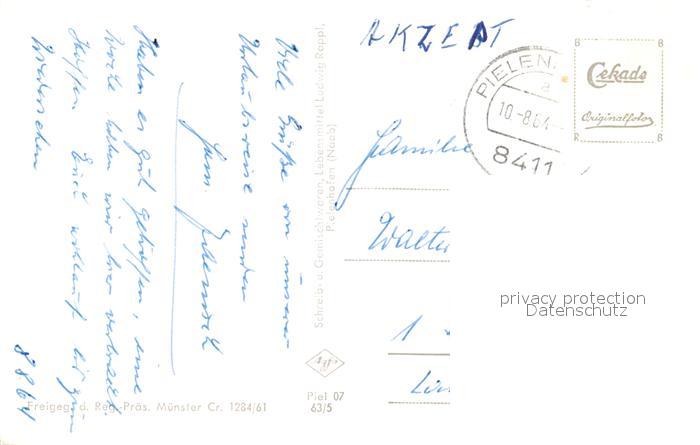 Viele Grüße von unserer
Urlaubsreise senden
Fam.
Haben es gut getroffen, eine
Woche haben wir hier verbracht.
Hoffen Euch wohlauf bis zum
Wiedersehen
8.8.64
Schreib- u. Gemischtwaren, Lebensmittel Ludwig Rappl,
Pielenhofen (Naab)
AKZEPT
PIELEN
a
10.-8.64
8411
B B
Cekade
Originalfoto
R B
Familie
Walter
1
privacy protection
Datenschutz
Freigeg. d. Reg.-Präs. Münster Cr. 1284/61
Piel 07
63/5